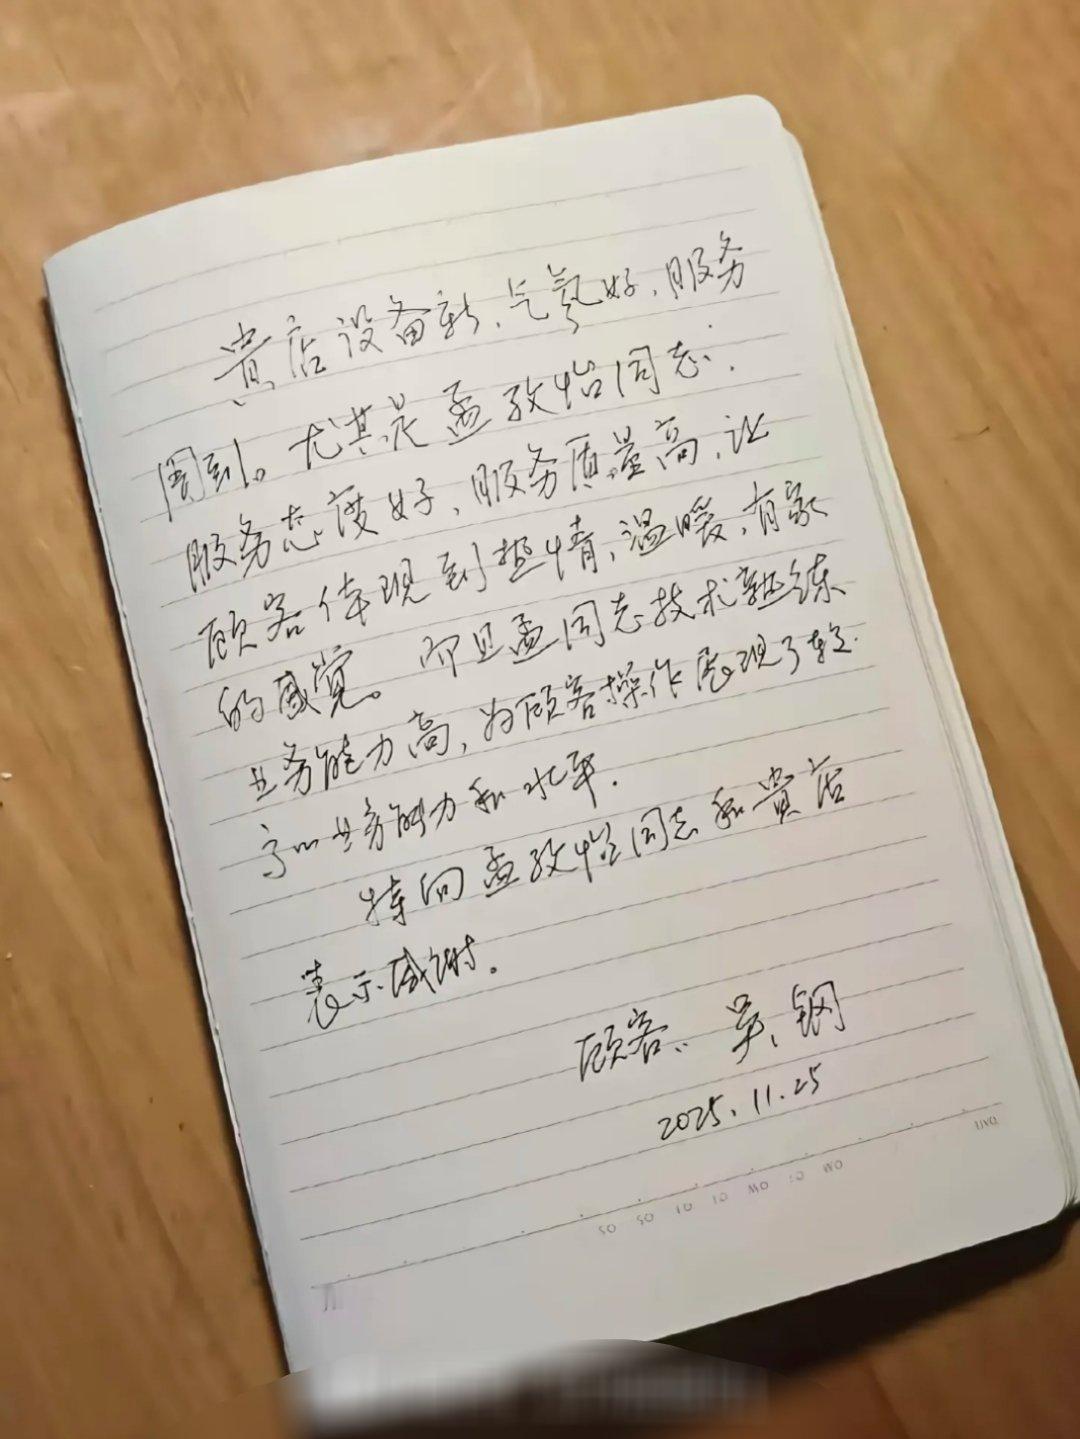 贵店设备新、气氛好、服务
周到。尤其是孟孜怡同志.
服务态度好、服务质量高,让
顾客体现到热情,温暖,有家
的感觉。而且孟同志技术熟练
业务能力高,为顾客操作展现了较
高的业务能力和水平.
特向孟孜怡同志和贵店
表示感谢。
顾客:吴钢
2025.11.25